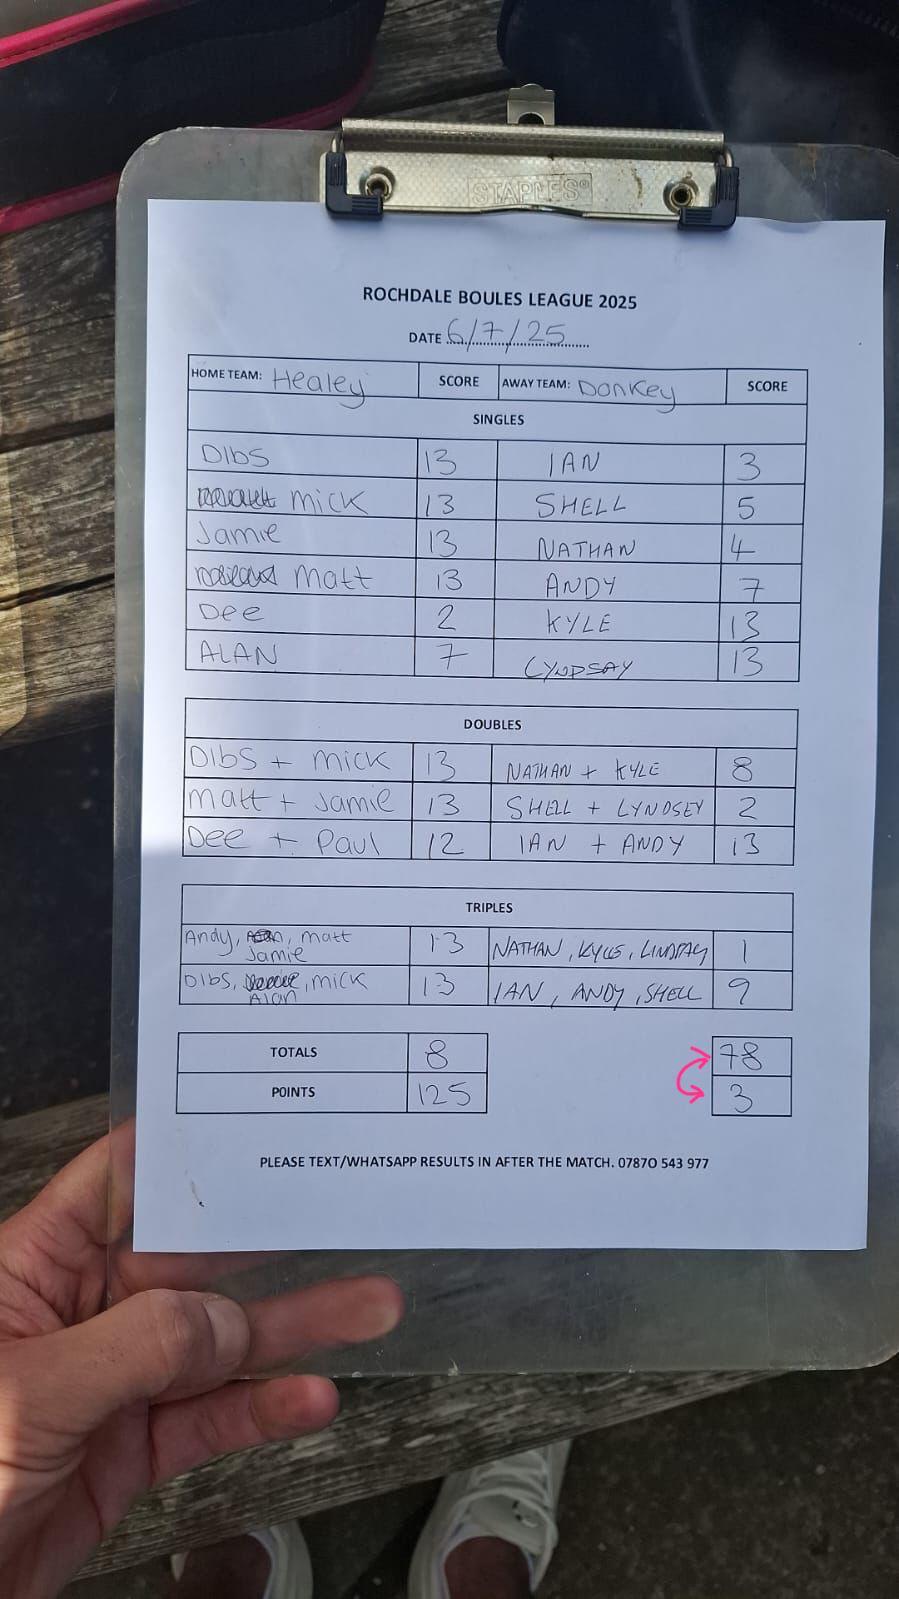 STAPLES®
ROCHDALE BOULES LEAGUE 2025
DATE 6/7/25
HOME TEAM: Healey SCORE AWAY TEAM: Donkey SCORE
SINGLES
DIbS 13 IAN 3
mICK 13 SHELL 5
Jamie 13 NATHAN 4
matt 13 ANDY 7
Dee 2 KYLE 13
ALAN 7 LYNDSAY 13
DOUBLES
DIbS + mICK 13 NATHAN + KYLE 8
matt + Jamie 13 SHELL + LYNDSEY 2
Dee + Paul 12 IAN + ANDY 13
TRIPLES
Andy, matt
Jamie 13 NATHAN, KYLE, LINDSAY 1
DIbS, mick
Alan 13 IAN, ANDY, SHELL 9
TOTALS 8 78
POINTS 125 3
PLEASE TEXT/WHATSAPP RESULTS IN AFTER THE MATCH. 0787O 543 977